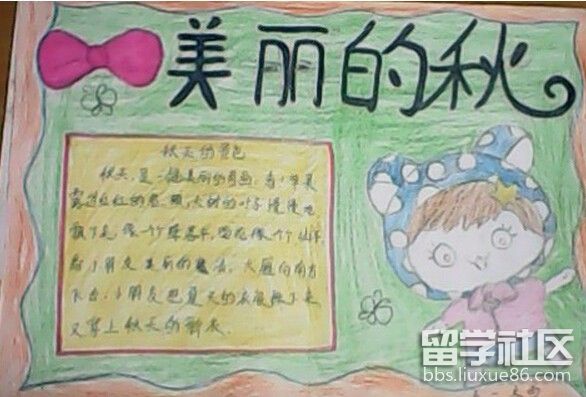 美丽的秋
秋天的景色
秋天,是一幅美丽的图画,看!苹果
露出红红的笑 ,大树的叶子慢慢地
飘了下来,像一个降落伞,
小朋友 美丽的 ,大雁向南方
飞去,小朋友把夏天的衣服换下来
又穿上秋天的新衣.
留学社区
bbs.liuxue86.com